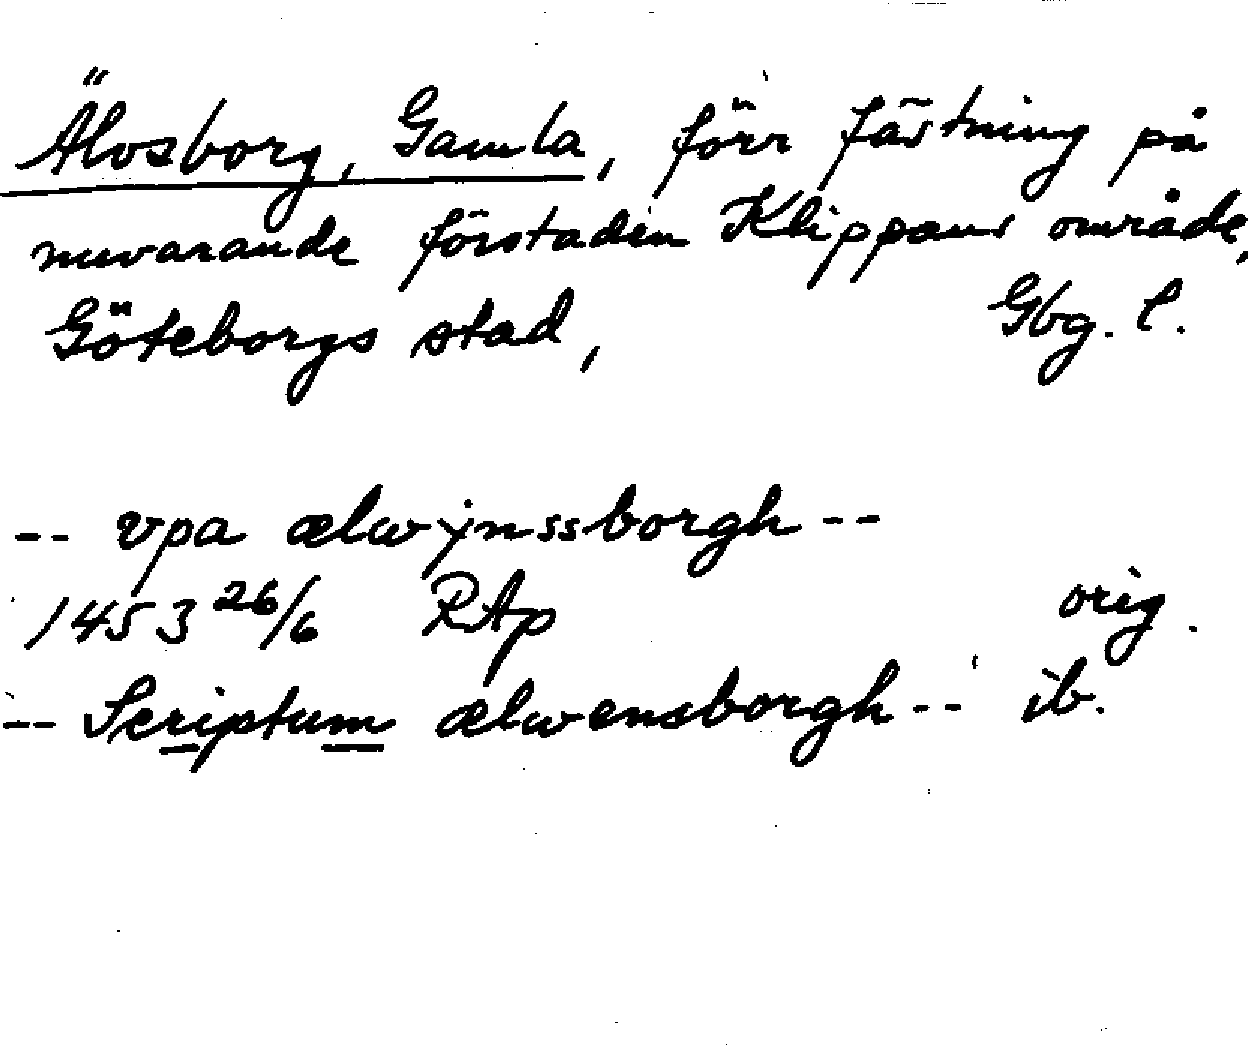 Älvsborg, Gamla, förr fästning på
nuvarande förstaden Klippans område,
Göteborgs stad, Gbg. l.
-- vpa ælwÿnssborgh --
1453 26/6 RAp orig.
-- Scriptum ælwensborgh -- ib.